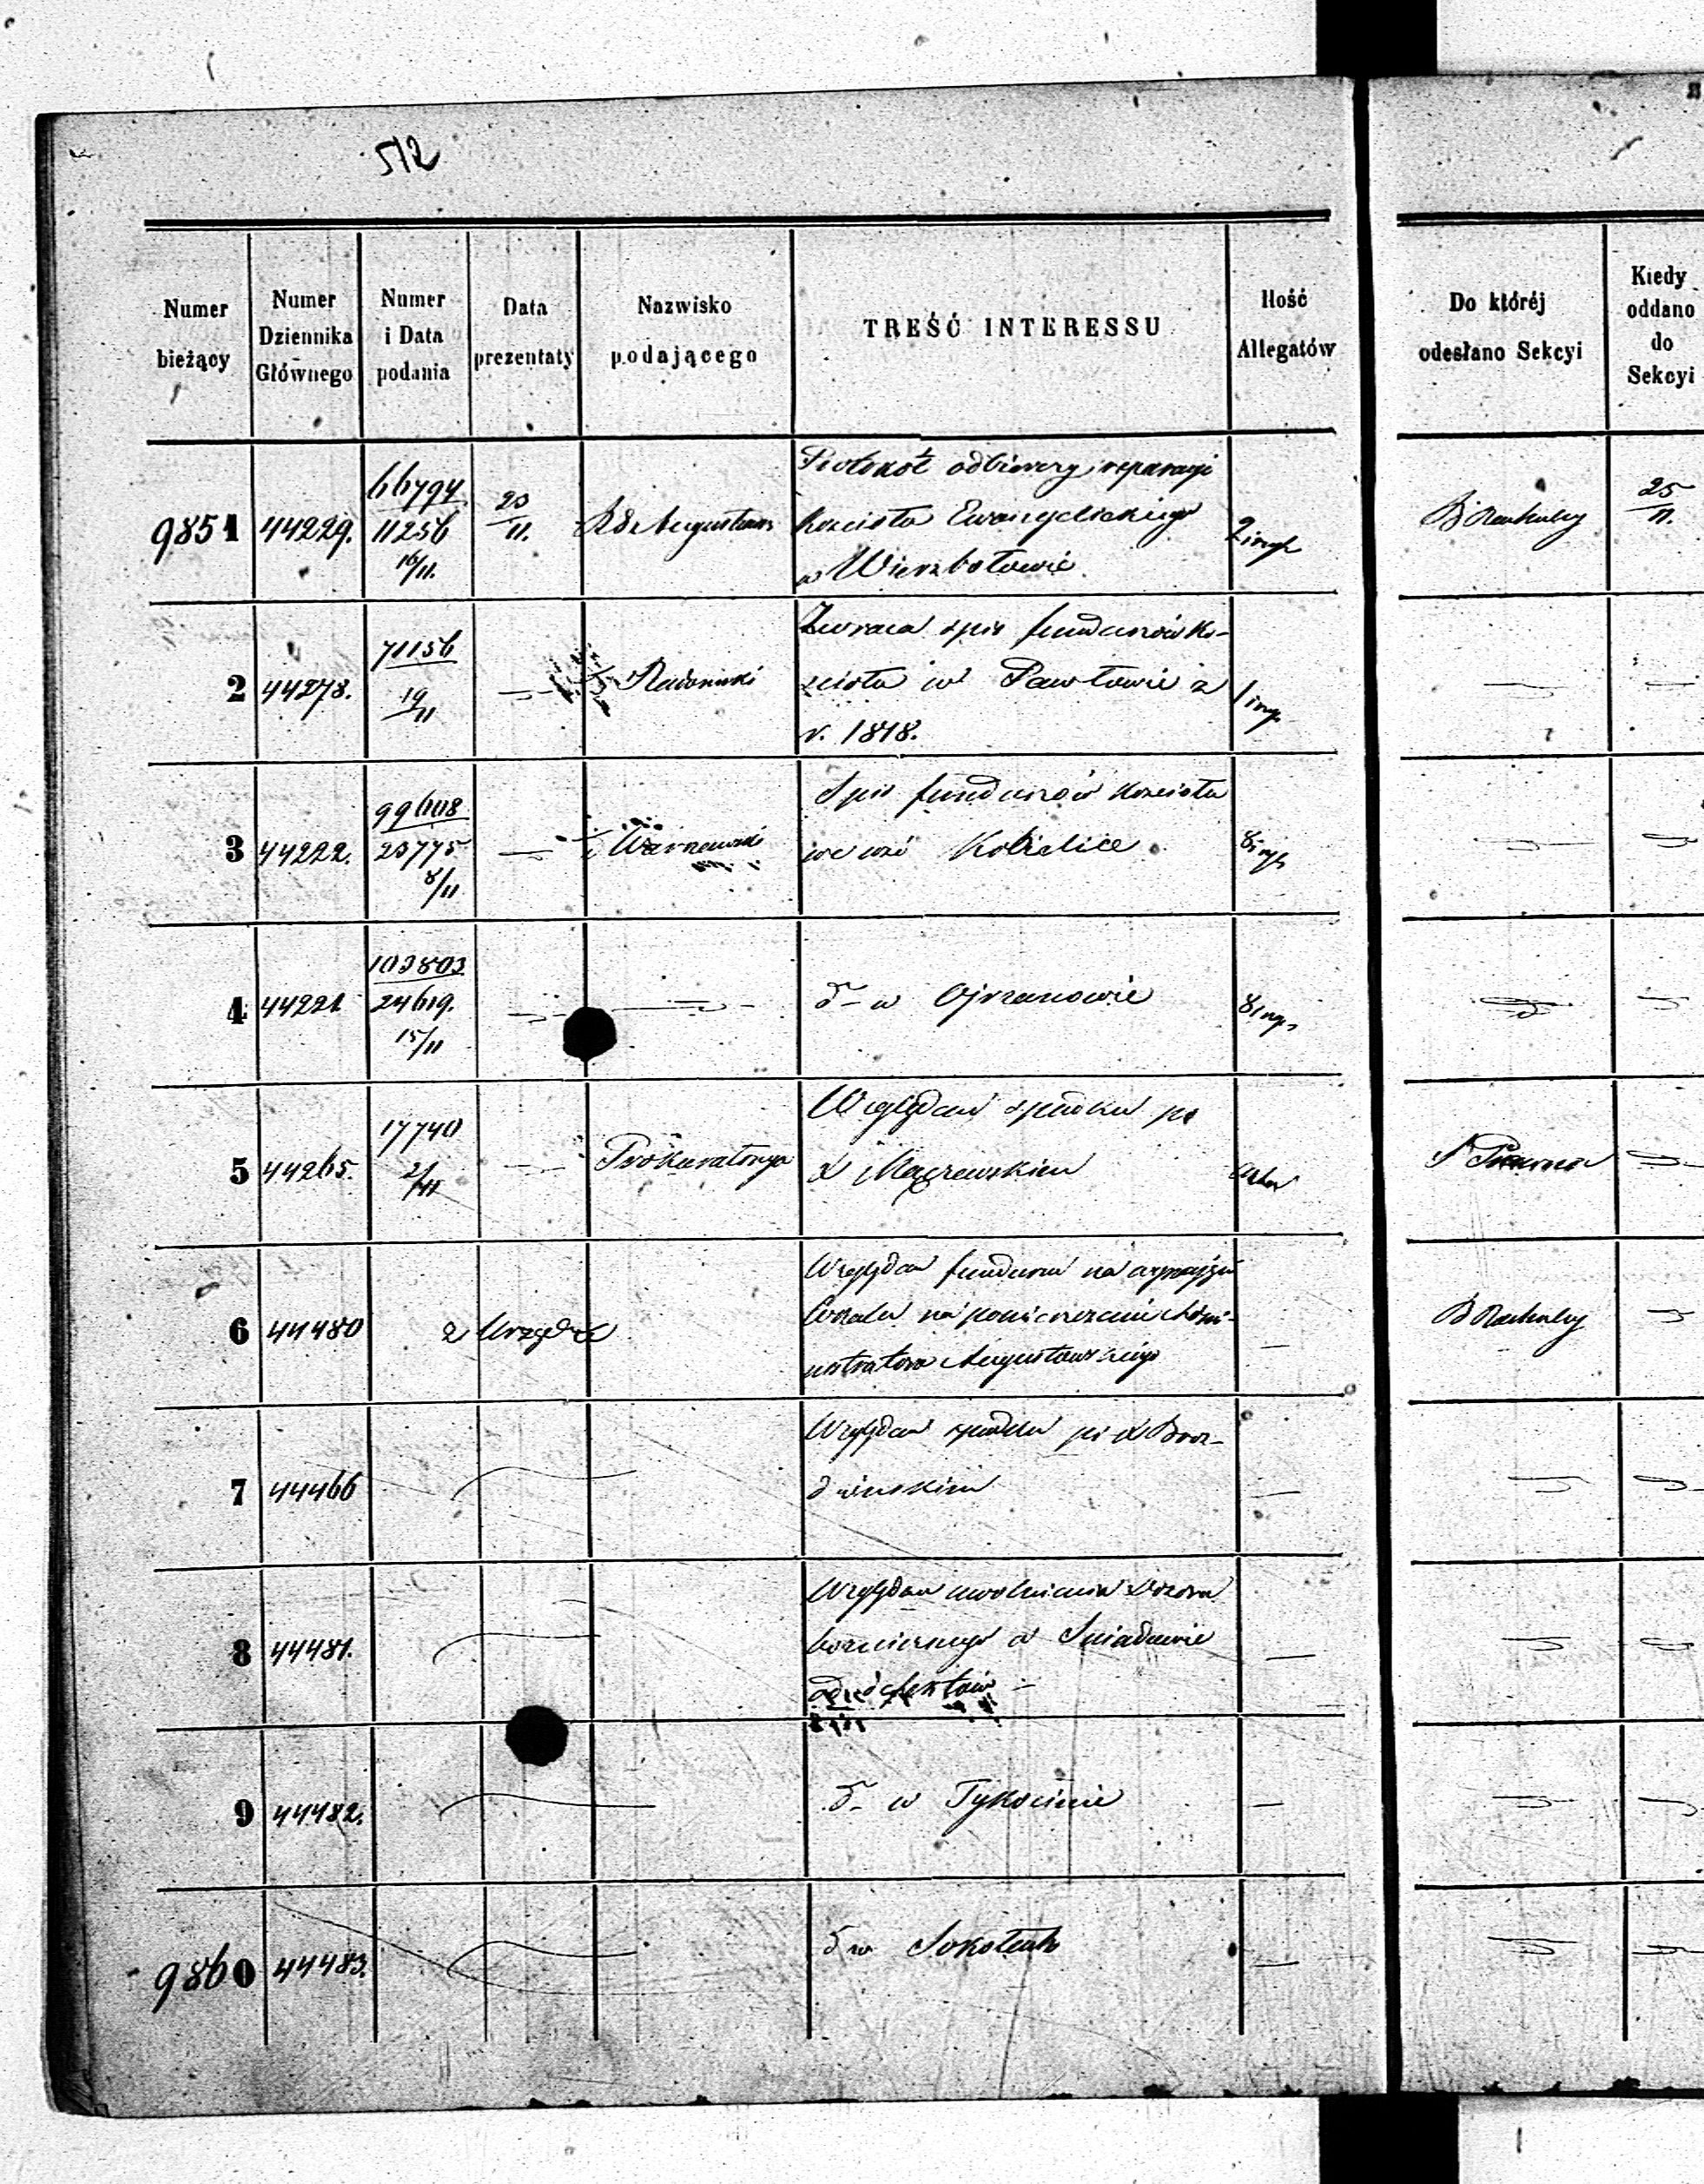 512
Numer bieżący
Numer Dziennika Głównego
Numer i Data podania
Data prezentaty
Nazwisko podającego
TREŚĆ INTERESSU
Ilość Allegatów
Do któréj odesłano Sekcyi
Kiedy oddano do Sekcyi
9851 44229. 66794 11256 16/11. 20/11. Augustows
Protokół odbiorczy reparacyi
kościoła Ewangelickiego
w Wierzbołowie
2
25/11.
2 44278. 71156 19/11 Radomski
Zwraca spis funduszów ko-
ścioła w Pawłowie z
r. 1818.
1
3 44222. 99608 23775 8/11 Warszawski
Spis funduszów kościoła
we wsi
8
4 44221 103803 24619. 15/11
d- w Ojrzanowie
8
5 44265. 17740 2/11 Prokuratorya
Względem spadku po
X
S Prawna
6 44480 z Urzędu
Względem funduszu na
lokalu na pomieszczenie Admi-
nistratora Augustowskiego
7 44466
Względem spadku po X
8 44481.
Względem uwolnienia Dozoru
bożniczego w Śniadowie
od
9 44482.
d- w Tykocinie
9860 44483.
d w Sokołach